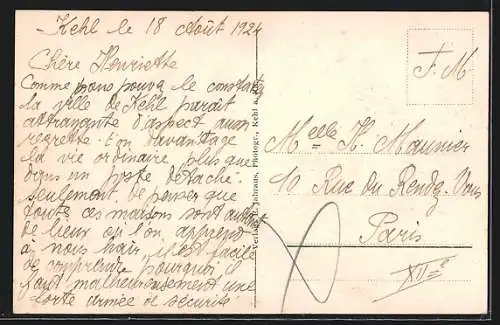 Kehl le 18 Août 1924
Chère Henriette
Comme vous pouvez le constater
la ville de Kehl paraît
attrayante d'aspect aussi
regrette t'on davantage
la vie ordinaire plus que
dans un poste détaché.
seulement de penser que
toutes ces maisons sont autant
de lieux où l'on apprend
à nous haïr, il est facile
de comprendre pourquoi il
faut malheureusement une
forte armée de sécurité
Verlag Jahraus, Photogr., Kehl a.
F. M
Melle H. Maunier
10 Rue du Rendez-Vous
Paris
XIIe